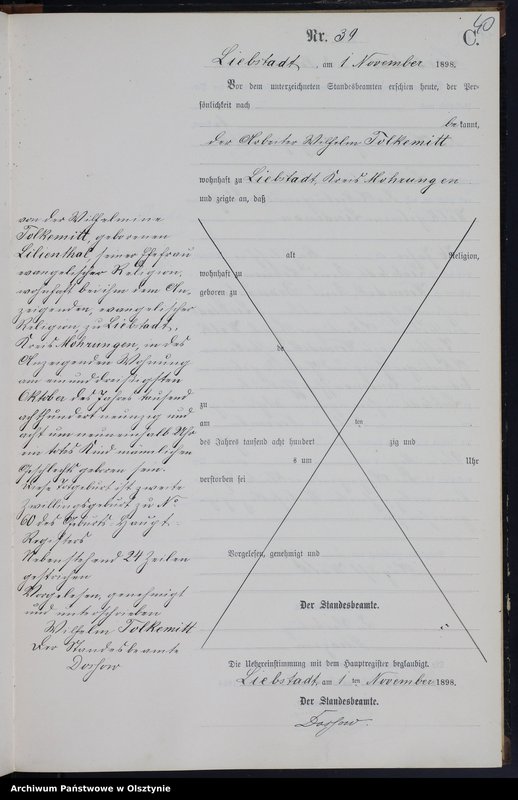 40
Nr. 39
C.
Liebstadt, am 1 November 1898.
Vor dem unterzeichneten Standesbeamten erschien heute, der Per-
sönlichkeit nach
be kannt,
der Arbeiter Wilhelm Tolkemitt
wohnhaft zu Liebstadt, Kreis Mohrungen
und zeigte an, daß
von der Wilhelmine
Tolkemitt, geborenen
Lilienthal, seiner Ehefrau
evangelischer Religion,
wohnhaft bei ihm dem An-
zeigenden, evangelischer
Religion, zu Liebstadt,
Kreis Mohrungen, in des
Anzeigenden Wohnung
am einunddreißigsten
Oktober des Jahres tausend
achthundert neunzig und
acht um neuneinhalb Uhr
ein totes Kind männlichen
Geschlechts geboren sein.
Diese Totgeburt ist zweite
Zwillingsgeburt zu No
60 des Geburts-Haupt-
Registers
Nebenstehend 24 Zeilen
gestrichen
Vorgelesen, genehmigt
und unterschrieben
Wilhelm Tolkemitt
Der Standesbeamte
Dorsow
alt Religion,
wohnhaft zu
geboren zu
de
zu
am ten
des Jahres tausend acht hundert zig und
s um Uhr
verstorben sei
Vorgelesen, genehmigt und
Der Standesbeamte.
Die Uebereinstimmung mit dem Hauptregister beglaubigt.
Liebstadt, am 1 ten November 1898.
Der Standesbeamte.
Dorsow.
Archiwum Państwowe w Olsztynie